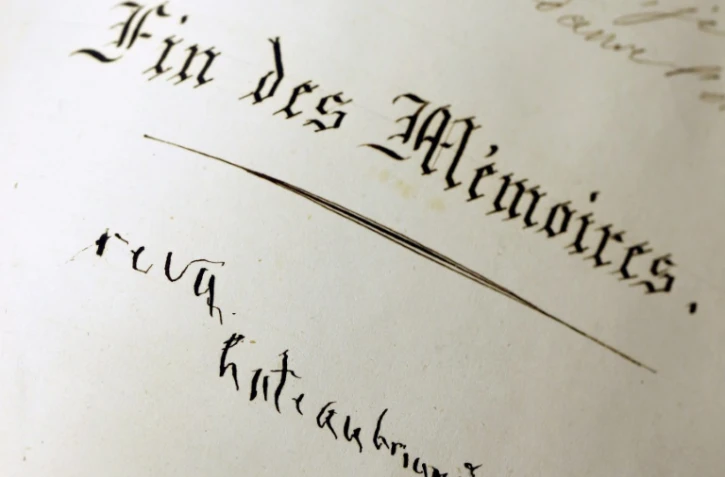 Fin des Mémoires.
revu
hateaubriand